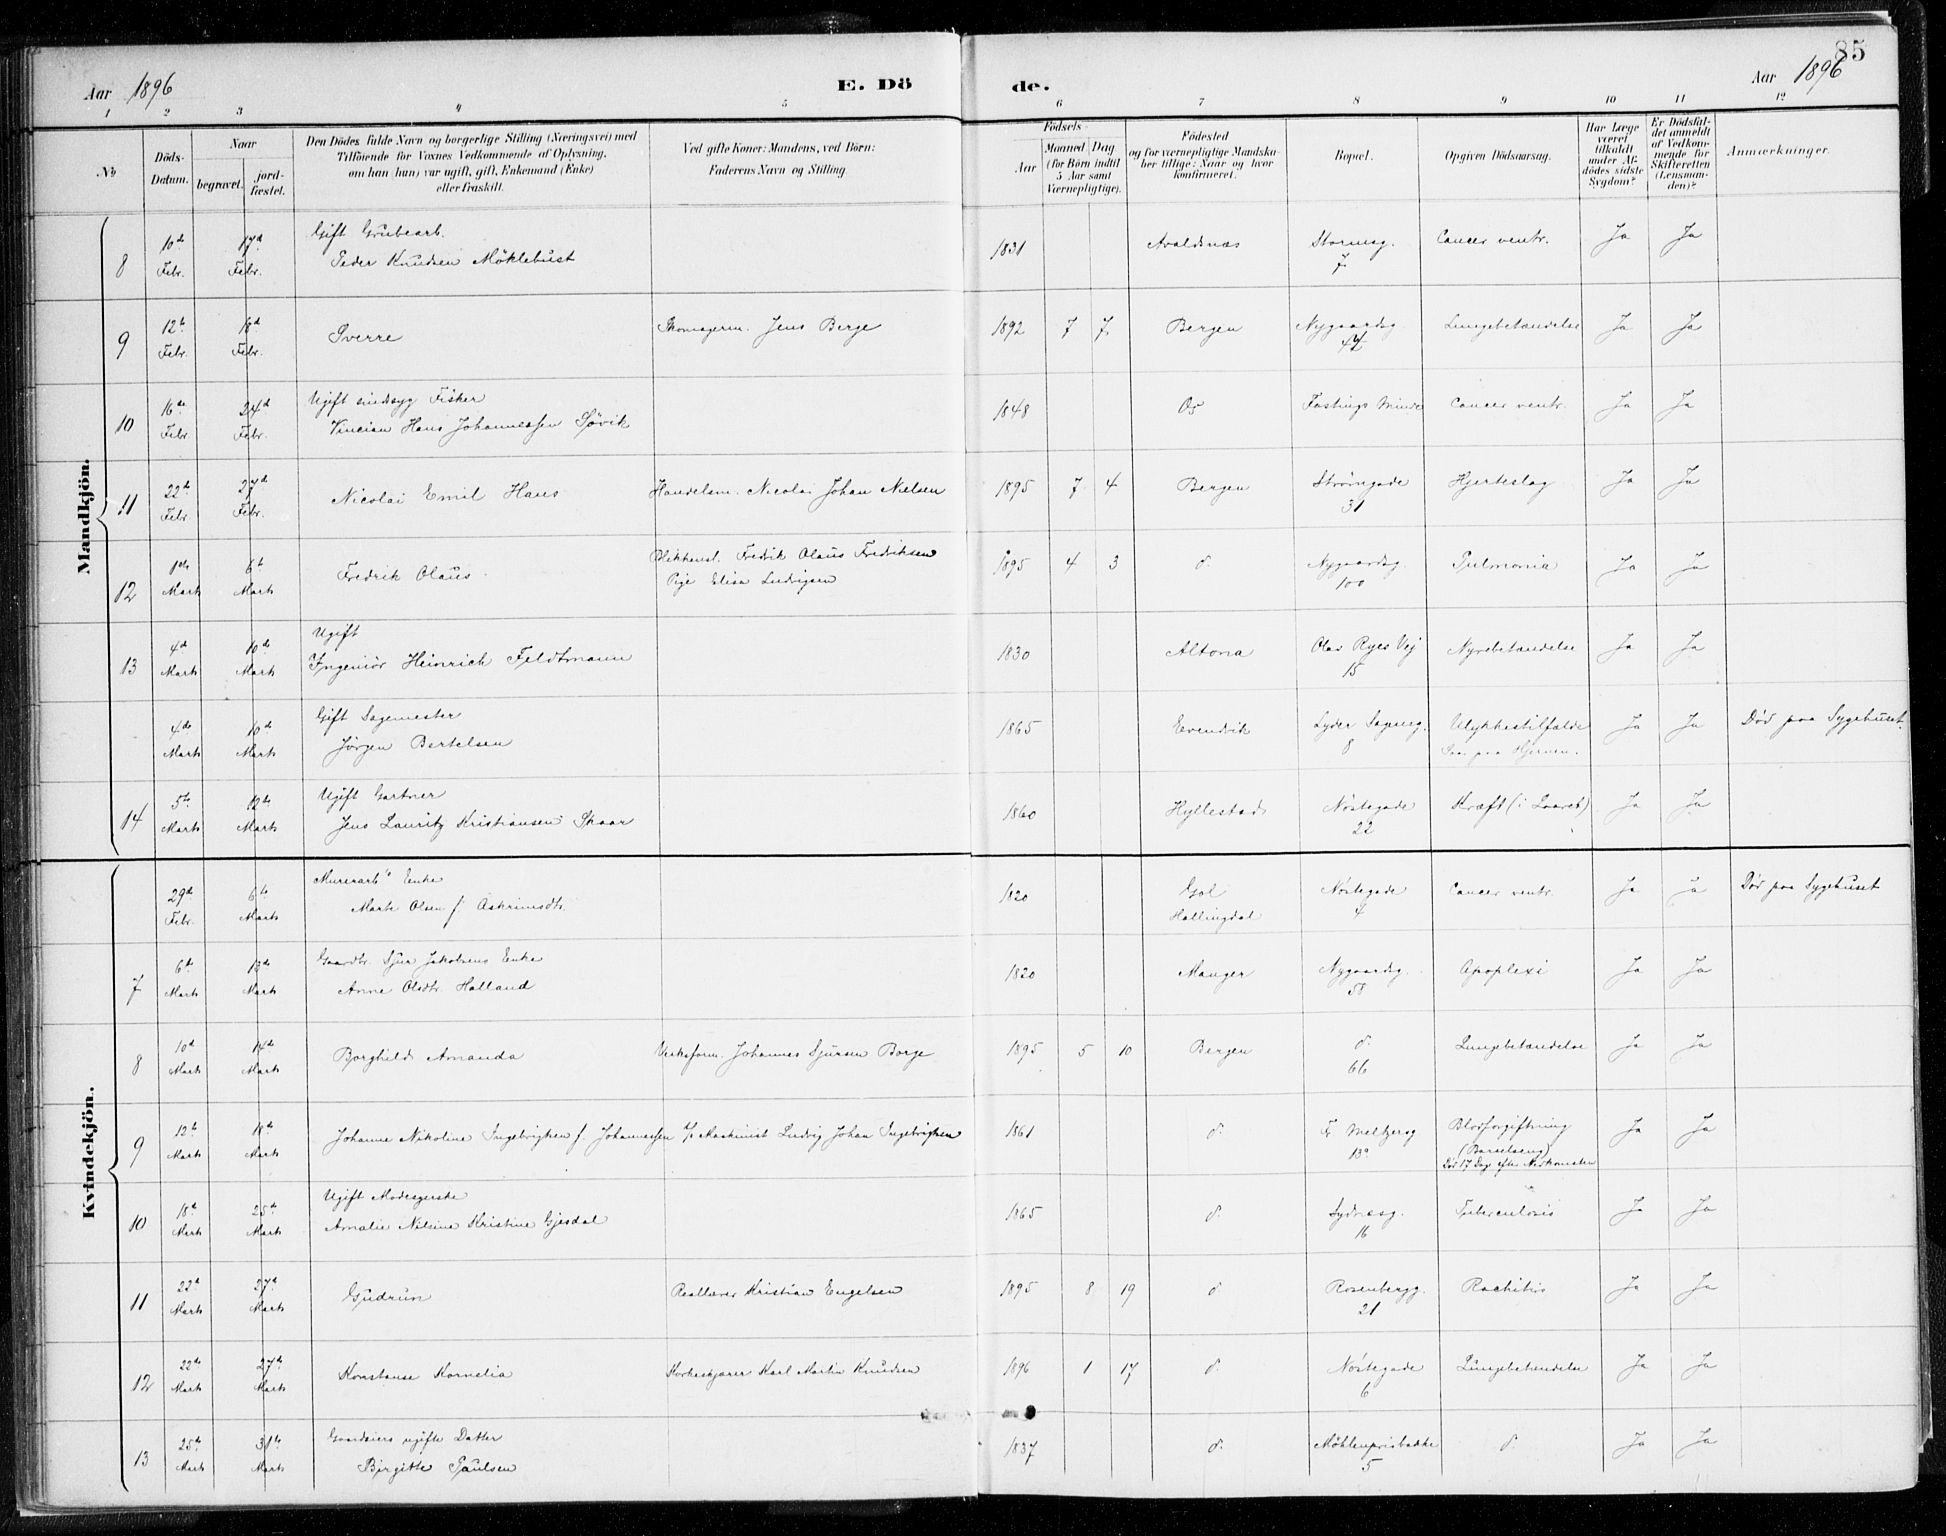 85
Aar 1896 E. Dö de. Aar 1896
1 2 3 4 5 6 7 8 9 10 11 12
No
Döds-Datum.
Naar
begravet.
jord-fæstet.
Den Dödes fulde Navn og borgerlige Stilling (Næringsvei) med
Tilföiende for Voxnes Vedkommende af Oplysning,
om han (hun) var ugift, gift, Enkemand (Enke)
eller fraskilt.
Ved gifte Koner: Mandens, ved Börn:
Faderens Navn og Stilling
Födsels-
Aar
Maaned Dag
(for Börn indtil
5 Aar samt
Værnepligtige).
Födested
og for værnepligtige Mandska-
ber tillige: Naar og hvor
konfirmeret.
Bopæl.
Opgiven Dödsaarsag.
Har Læge
været
tilkaldt
under Af-
dödes sidste
Sygdom?
Er Dödsfal-
det anmeldt
af Vedkom-
mende for
Skifteretten
(Lensman-
den)?
Anmærkninger.
Mandkjön.
8 10de Febr. 17de Febr. Gift Grubearb.
Peder Knudsen Möklebust 1831 Avaldsnæs Stormsg. 7 Cancer ventr. Ja Ja
9 12te Febr. 18de Febr. Sverre Skomagerm. Jens Berge 1892 7 7 Bergen Nygaardsg. Lungebetændelse Ja Ja
10 16de Febr 24de Febr. Ugift sindssyg Fisker
Hans Johannessen Søvik 1848 Os Fastings Minde Cancer ventr. Ja Ja
11 22de Febr 27de Febr. Nicolai Emil Hans Handelsm. Nicolai Johan Nielsen 1895 7 4 Bergen Strömgade 31 Hjerteslag Ja Ja
12 1ste Marts 6te Marts Fredrik Olaus Fredrik Olaus Fredriksen
Pige Elisa Ludvigsen 1895 4 3 d. Nygaardsg. 100 Pulmonia Ja Ja
13 4de Marts 10de Marts Ugift
Ingeniør Heinrich Feldtmann 1830 Altona Olav Ryes Vej 15 Nyrebetændelse Ja Ja
4de Marts 10de Marts Gift Sagmester
Jørgen Bertelsen 1865 Evendvik Lyder Sagensg. 8 Ulykkestilfælde
Saar paa Hjernen. Ja Ja Død paa Sygehuset
14 5te Marts 12te Marts Ugift Gartner
Jens Lauritz Kristiansen Skaar 1860 Hyllestad Nøstegade 22 Kræft (i Laaret) Ja Ja
Kvindekjön.
29de Febr. 6te Marts Murerarbs Enke
Marte Olsen f. 1820 Gol
Hallingdal Nøstegade 4 Cancer ventr. Ja Ja Død paa Sygehuset
7 6te Marts 13de Marts Gaardbr. Sjur Jakobsens Enke
Anne Olsdtr. Halland 1820 Manger Nygaardsg. 58 Apoplexi Ja Ja
8 10de Marts 14de Marts Borghild Amanda Verksform. Johannes Sjursen Borge 1895 5 10 Bergen d. 66 Lungebetændelse Ja Ja
9 12te Marts 18de Marts Johanne Nikoline Ingebrigtsen f. Johannessen Maskinist Ludvig Johan Ingebrigtsen 1861 d. Fr Meltzersg 13 Blodforgiftning
(Barselseng)
Død 17 Dage efter Nedkomsten Ja Ja
10 18de Marts 25de Marts Ugift Modesyerske
Amalie Nilsine Kristine Gjesdal 1865 d. Sydnæsg. 16 Tuberculosis Ja Ja
11 22de Marts 27de Marts Gudrun Reallærer Kristian Engelsen 1895 8 19 d. Rosenbergg. 21 Rachitis Ja Ja
12 22de Marts 27de Marts Konstanse Kornelia Korkeskjærer Karl Martin Knudsen 1896 1 17 d. Nøstegade 6 Lungebetændelse Ja Ja
13 25de Marts 31te Marts Gaardeiers ugifte Datter
Birgitte Paulsen 1837 d. Möhlenprisbakke 5 d. Ja Ja